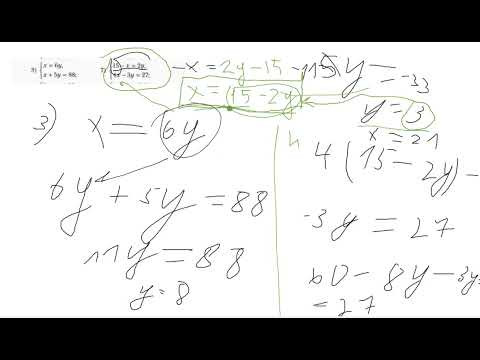 3) { x = 6y,
x + 5y = 88;
{ 15 - x = 2y,
4x - 3y = 27;
-x = 2y - 15
x = 15 - 2y
-11y = -33
y = 3
x = 21
3) x = 6y
6y + 5y = 88
11y = 88
y = 8
4 (15 - 2y) -
-3y = 27
60 - 8y - 3y
= 27